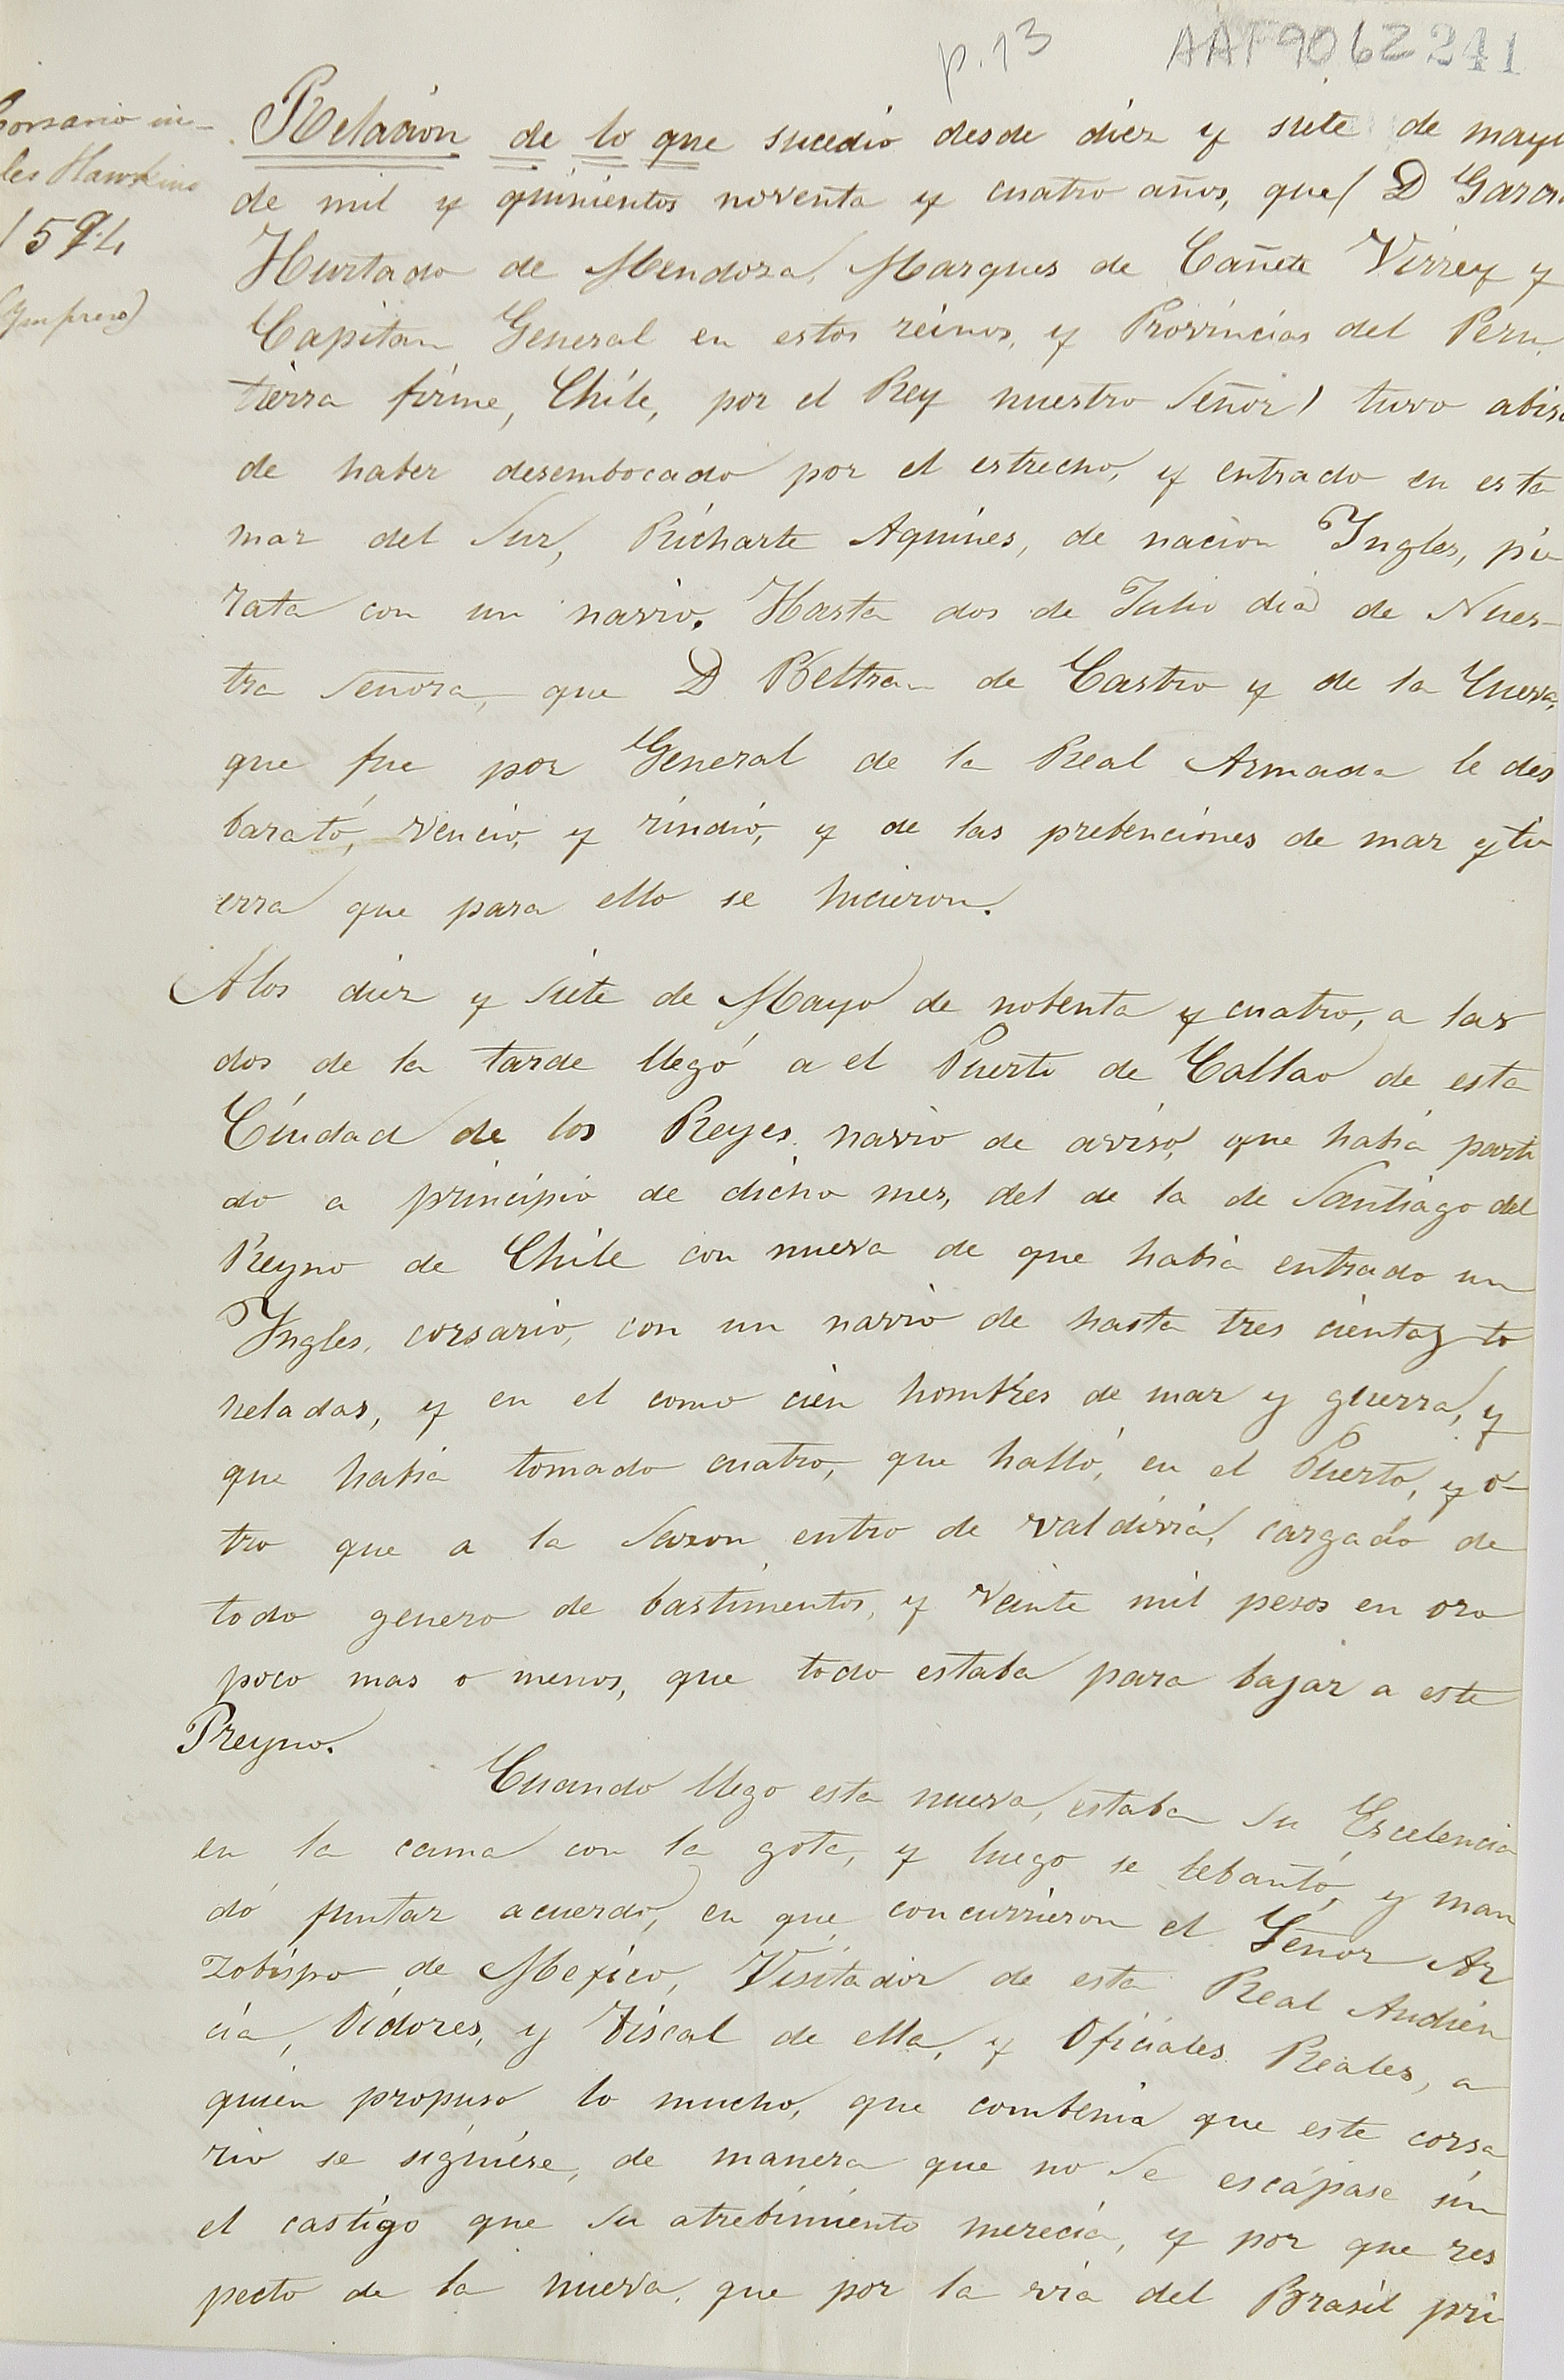 p. 13
AAF9062 241
Corsario in-
les Hawkins
1594
(Ympreso)
Relacion de lo que sucedio desde diez y siete de mayo
de mil y quinientos noventa y cuatro años, que ( D Garcia
Hurtado de Mendoza, Marques de Cañete Virrey y
Capitan General en estos reinos, y Provincias del Peru,
tierra firme, Chile, por el Rey nuestro Señor) tuvo abiso
de haber desembocado por el estrecho, y entrado en esta
mar del Sur, Richarte Aquines, de nacion Yngles, pi-
rata con un navio. Hasta dos de Julio dia de Nues-
tra Señora, que D Beltran de Castro y de la Cueva,
que fue por General de la Real Armada le des
barató, vencio, y rindió, y de las prebenciones de mar y ti
erra que para ello se hicieron.
A los diez y siete de Mayo de nobenta y cuatro, a las
dos de la tarde llegó a el Puerto de Callao de esta
Ciudad de los Reyes, navio de aviso, que habia parti
do a principio de dicho mes, del de la de Santiago del
Reyno de Chile con nueva de que habia entrado un
Yngles, corsario, con un navio de hasta tres cientas to
neladas, y en el como cien hombres de mar y guerra, y
que habia tomado cuatro, que halló, en el Puerto, y o-
tro que a la sazon entro de valdivia, cargado de
todo genero de bastimentos, y veinte mil pesos en oro
poco mas o menos, que todo estaba para bajar a este
Preyno.
Cuando llego esta nueva, estaba su Escelencia
en la cama con la gota, y luego se lebantó, y man
dó juntar acuerdo, en que concurrieron el Señor Ar
zobispo de Mejico, Visitador de esta Real Audien
cia, Oidores, y Fiscal de ella, y Oficiales Reales, a
quien propuso lo mucho, que combenia que este corsa
rio se siguiese, de manera que no se escapase sin
el castigo que su atrebimiento merecia, y por que res
pecto de la nueva, que por la via del Brasil pri